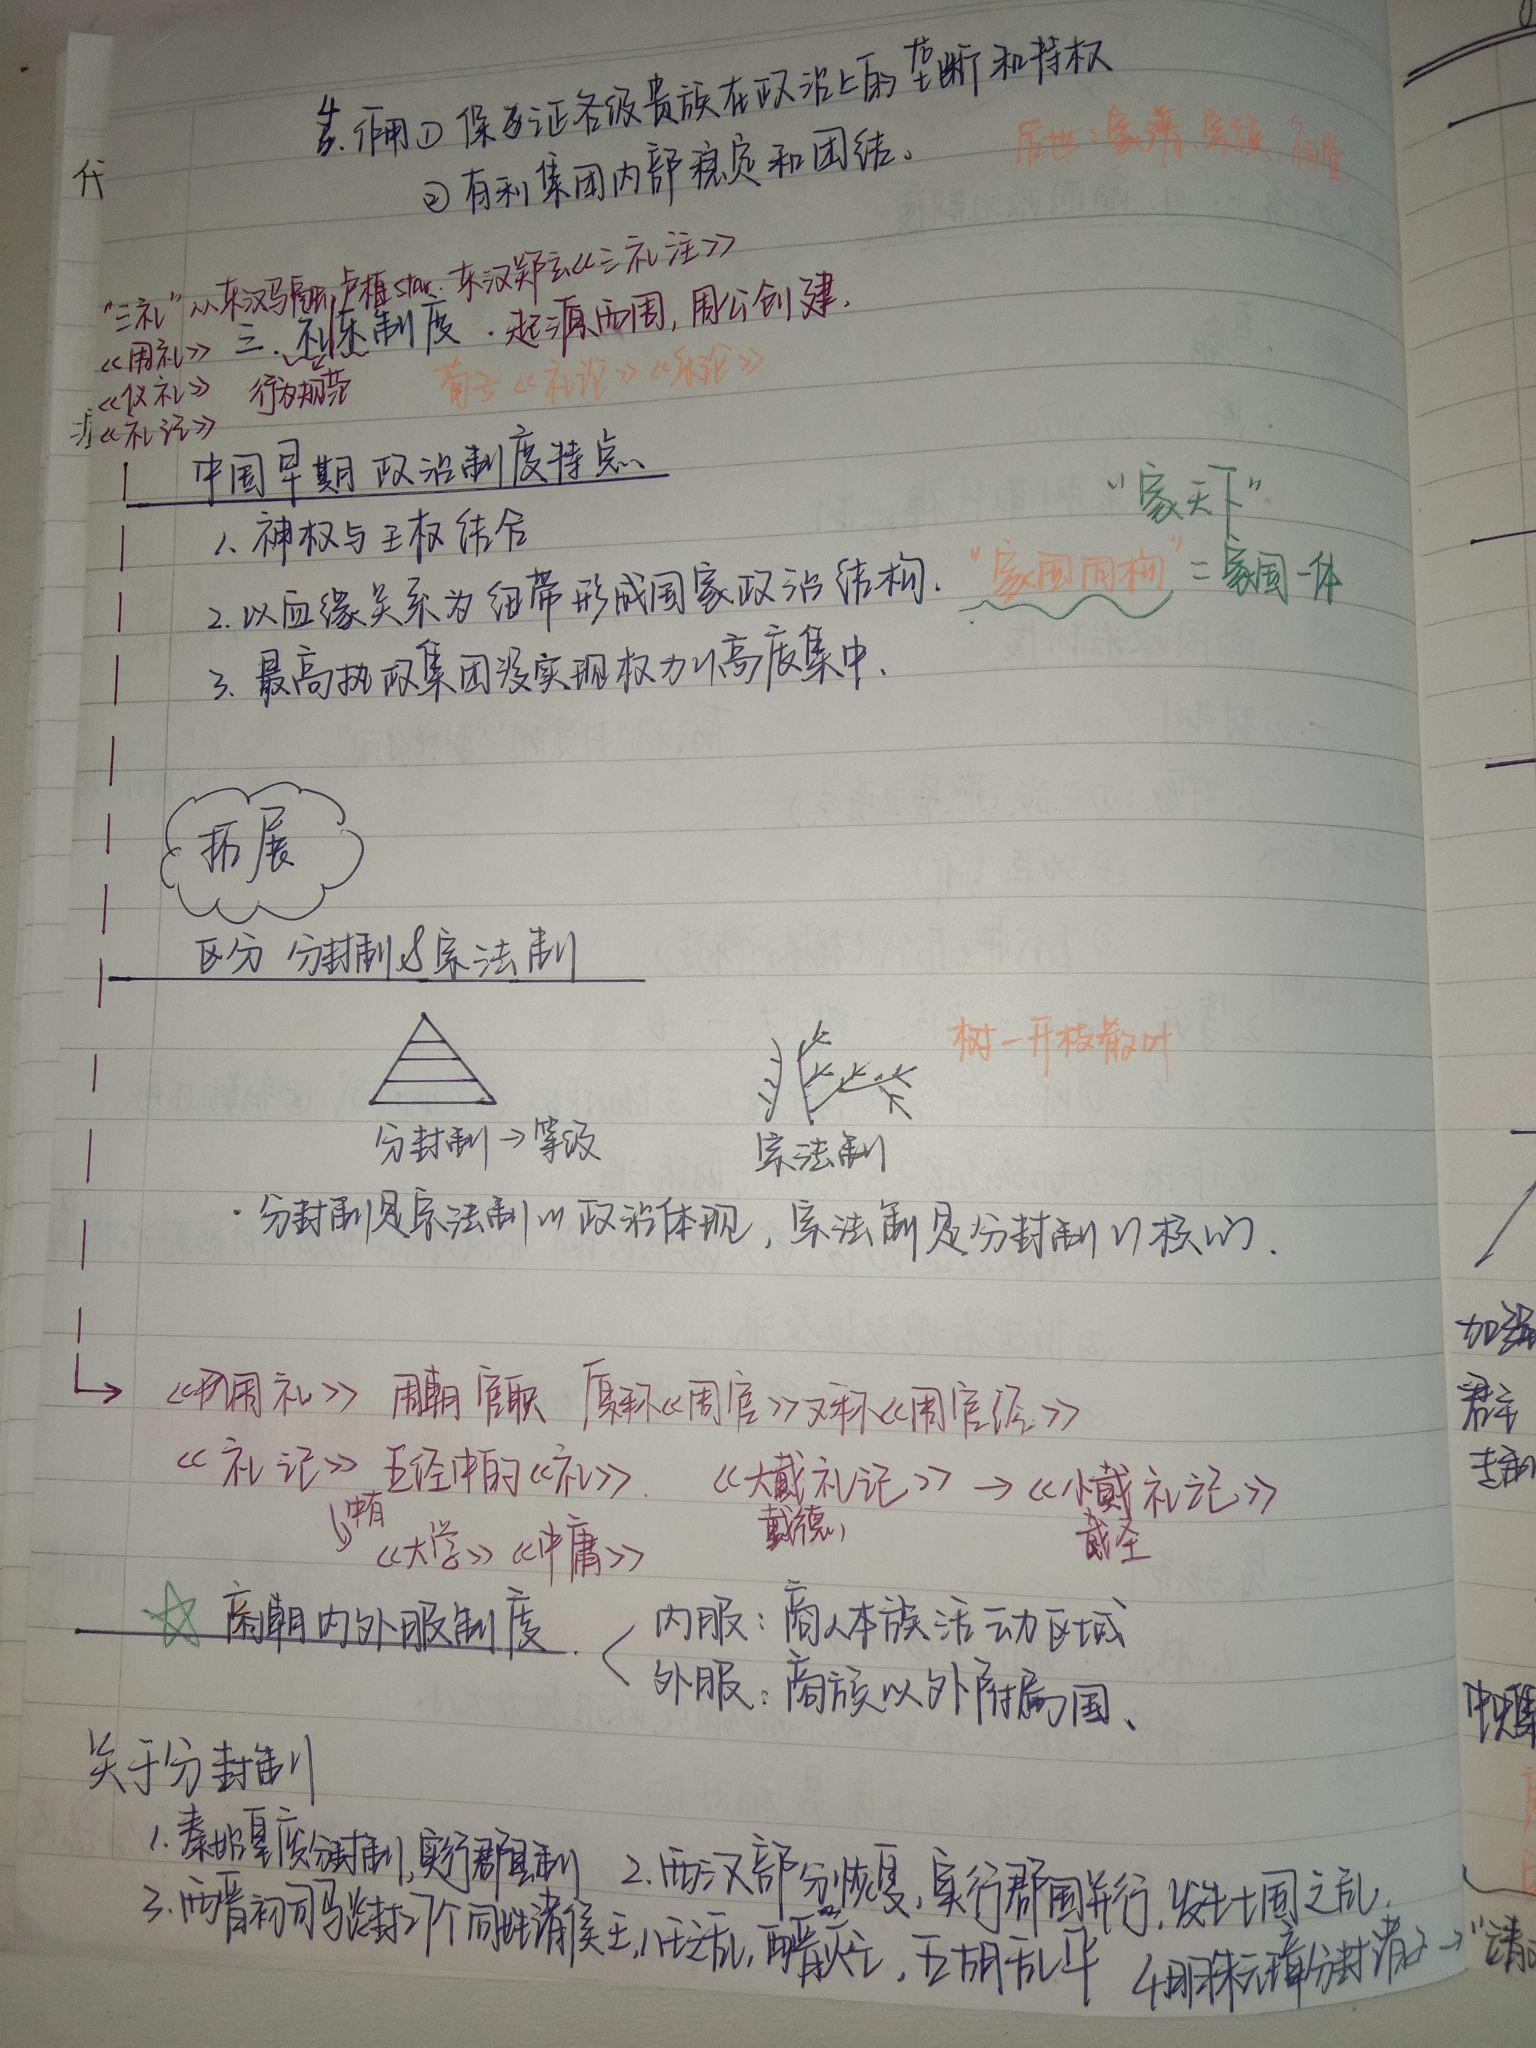 代
4.作用① 保证各级贵族在政治上的垄断和特权
② 有利集团内部稳定和团结。
后世:家谱、家族、祠堂
"三礼" 从东汉马融、卢植star. 东汉郑玄《三礼注》
三.礼乐制度 · 起源西周,周公创建.
《周礼》
《仪礼》 行为规范 荀子《礼论》《乐论》
《礼记》
中国早期政治制度特点
"家天下"
1. 神权与王权结合
2. 以血缘关系为纽带形成国家政治结构. "家国同构" = 家国一体
3. 最高执政集团没实现权力的高度集中.
拓展
区分 分封制&宗法制
树—开枝散叶
分封制→等级 宗法制
· 分封制是宗法制的政治体现,宗法制是分封制的核心.
《周礼》 周朝官职 原称《周官》又称《周官经》
《礼记》 五经中的《礼》. 《大戴礼记》→《小戴礼记》
戴德 戴圣
中有《大学》《中庸》
商朝内外服制度
内服:商人本族活动区域
外服:商族以外附属国、
关于分封制
1. 秦始皇废分封制,实行郡县制 2. 西汉部分恢复,实行郡国并行,发生七国之乱.
3. 西晋初司马炎封27个同姓诸侯王,八王之乱,西晋灭亡,五胡乱华 4.明朱元璋分封诸子→"靖
加强
君主
中央集